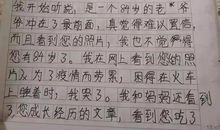 我开始听说，是一个84岁的老爷爷
冲在了最前面，真觉得难以置信，
而且看到您的照片，我也不觉得
您有84岁了。我在网上看到您的照
片，为了疫情而劳累，困得在火车
上睡着时，我哭了。我和妈妈还看到
了您成长经历的文章，看到您吃了